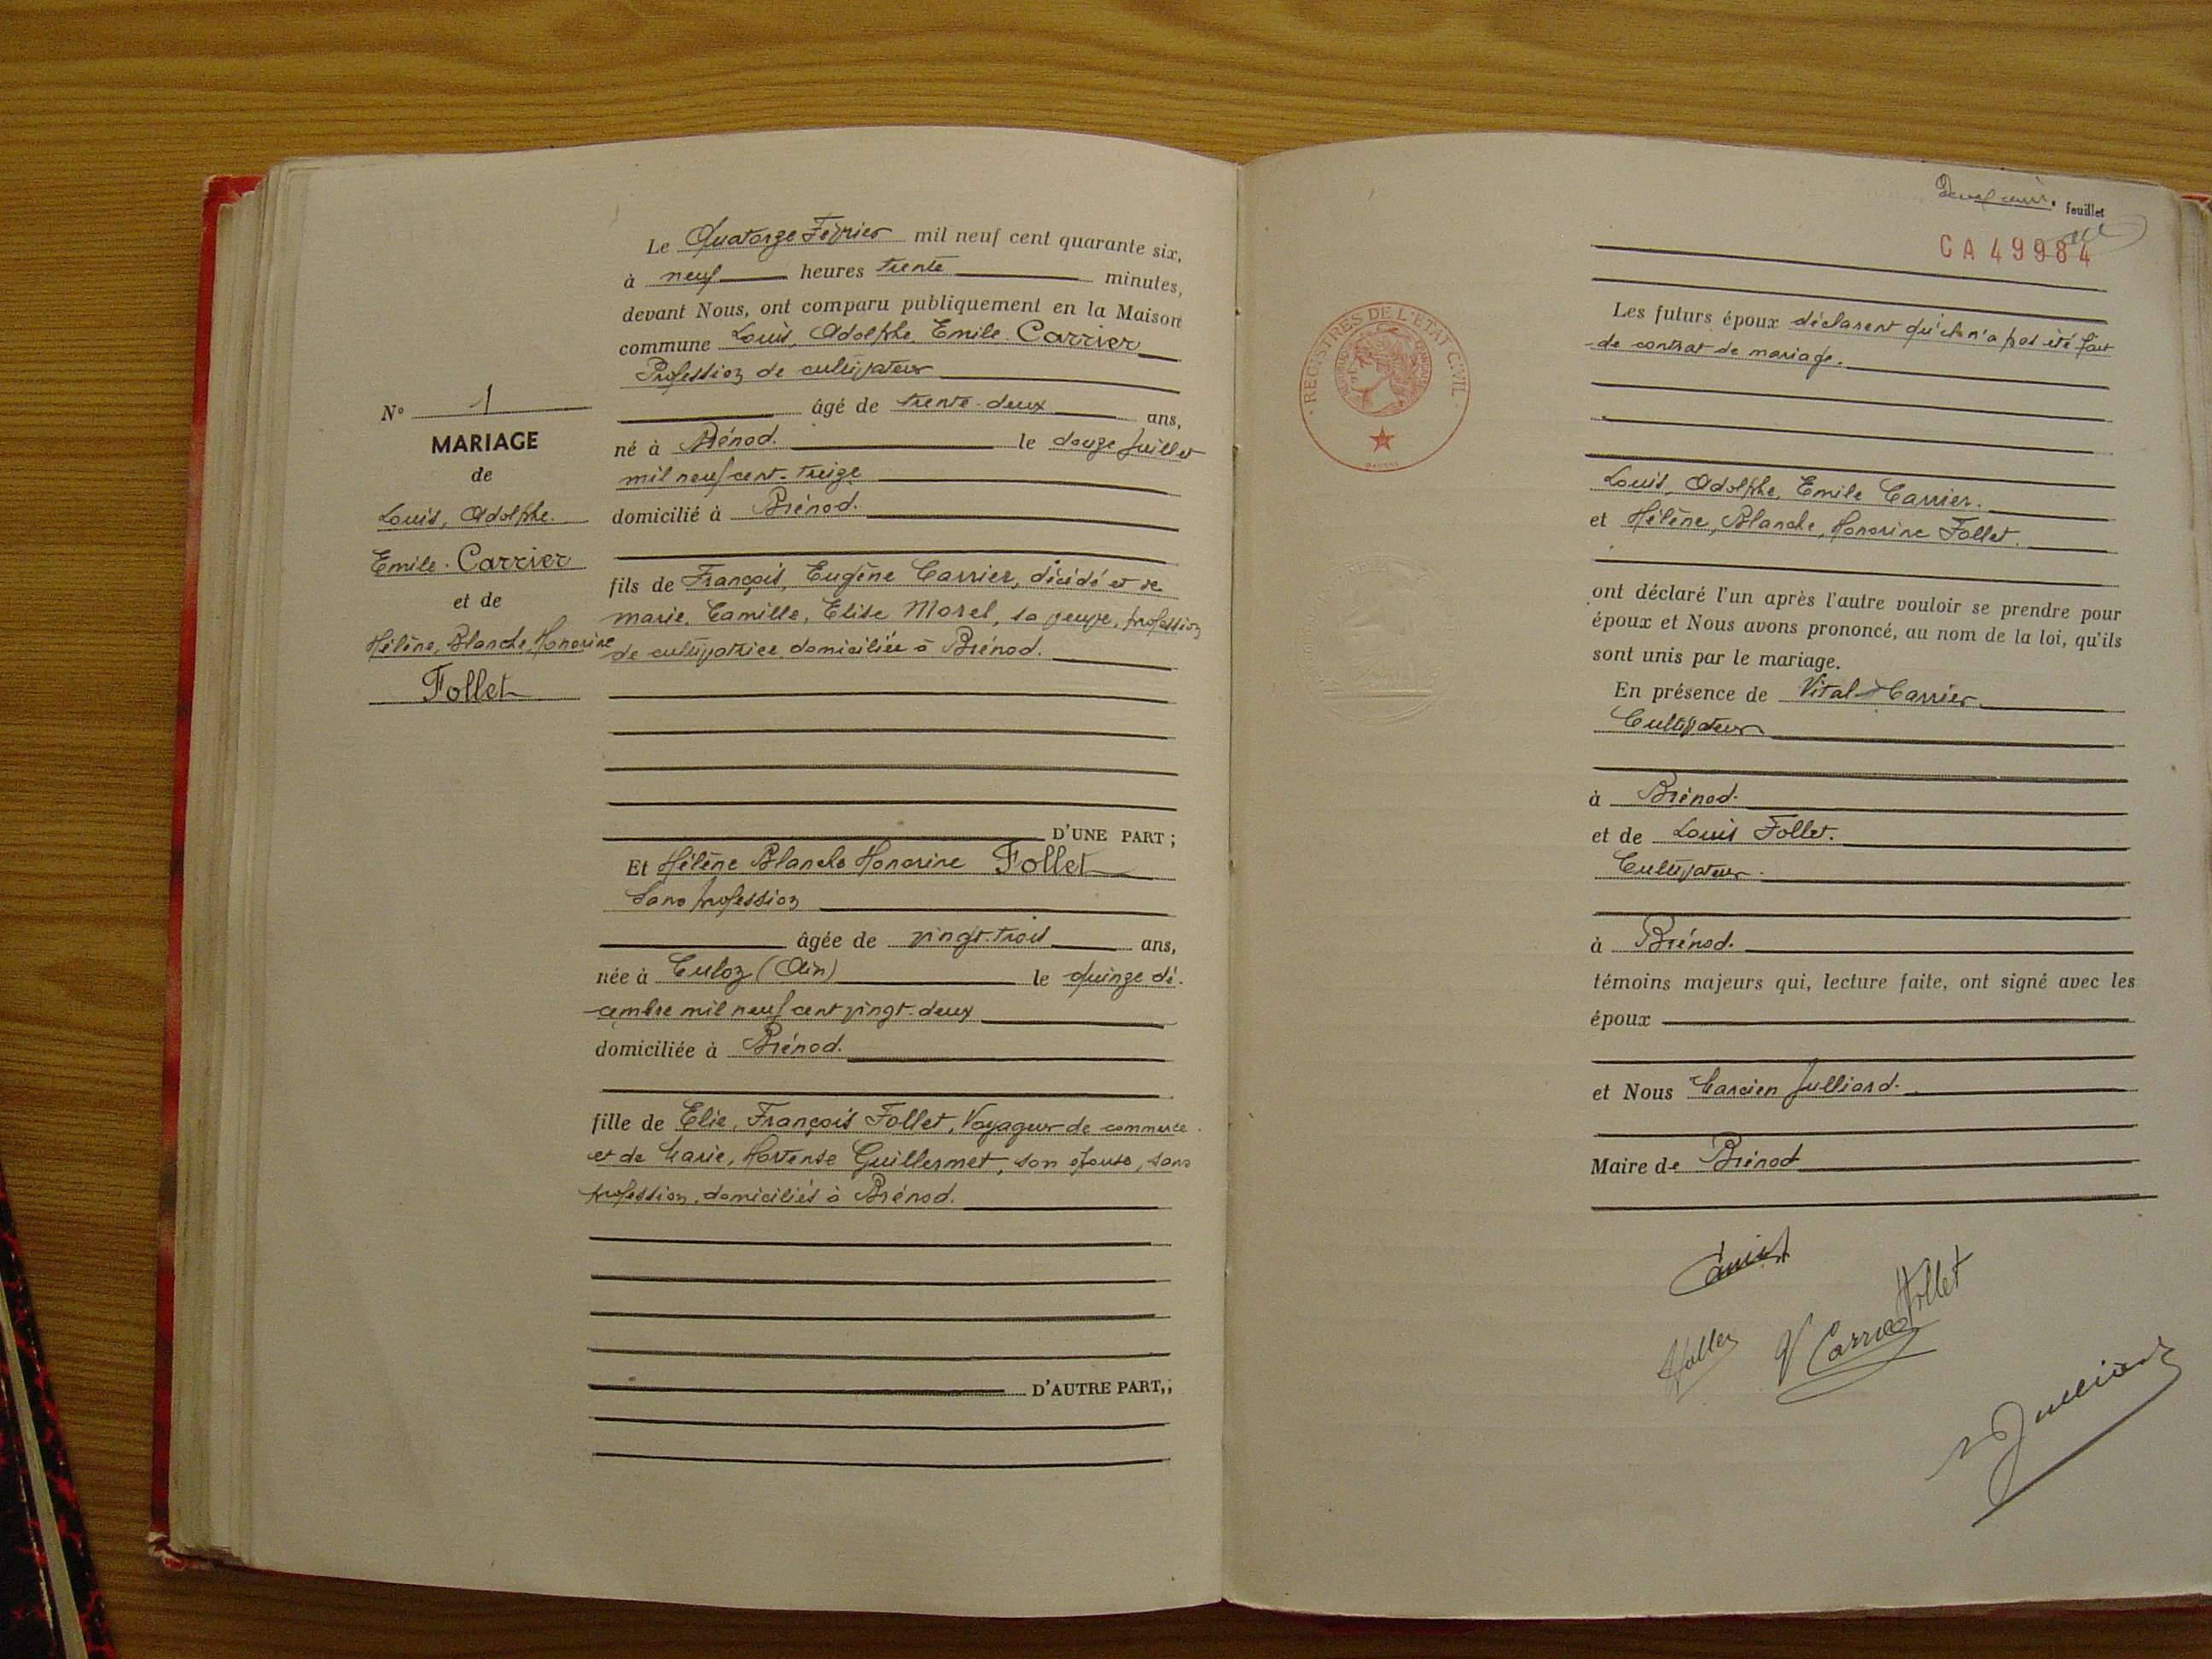 Le Quatorze Février mil neuf cent quarante six,
à neuf heures trente minutes,
devant Nous, ont comparu publiquement en la Maison
commune Louis, Adolphe, Emile Carrier
Profession de cultivateur
âgé de trente-deux ans,
né à Brénod. le douze Juillet
mil neuf cent-treize
domicilié à Brénod.
fils de François, Eugène Carrier, décédé et de
marie, Camille, Elise Morel, sa veuve, profession
de cultivatrice domiciliée à Brénod.
D'UNE PART ;
N° 1
MARIAGE
de
Louis, Adolphe.
Emile. Carrier
et de
Hélène, Blanche, Honorine
Follet
Et Hélène Blanche Honorine Follet
Sans profession
âgée de vingt-trois ans,
née à Culoz (Ain) le quinze dé-
cembre mil neuf cent vingt-deux
domiciliée à Brénod.
fille de Elie, François Follet, Voyageur de commerce
et de Marie, Hortense Guillermet, son épouse, sans
profession, domiciliés à Brénod.
D'AUTRE PART,;
feuillet
CA 49984
REGISTRES DE L'ETAT CIVIL
Les futurs époux déclarent qu'il n'a pas été fait
de contrat de mariage.
Louis, Adolphe, Emile Carrier.
et Hélène, Blanche, Honorine Follet.
ont déclaré l'un après l'autre vouloir se prendre pour
époux et Nous avons prononcé, au nom de la loi, qu'ils
sont unis par le mariage.
En présence de Vital Carrier
Cultivateur
à Brénod.
et de Louis Follet.
Cultivateur.
à Brénod.
témoins majeurs qui, lecture faite, ont signé avec les
époux
et Nous Marcien Julliard.
Maire de Brénod
Follet
V Carrier